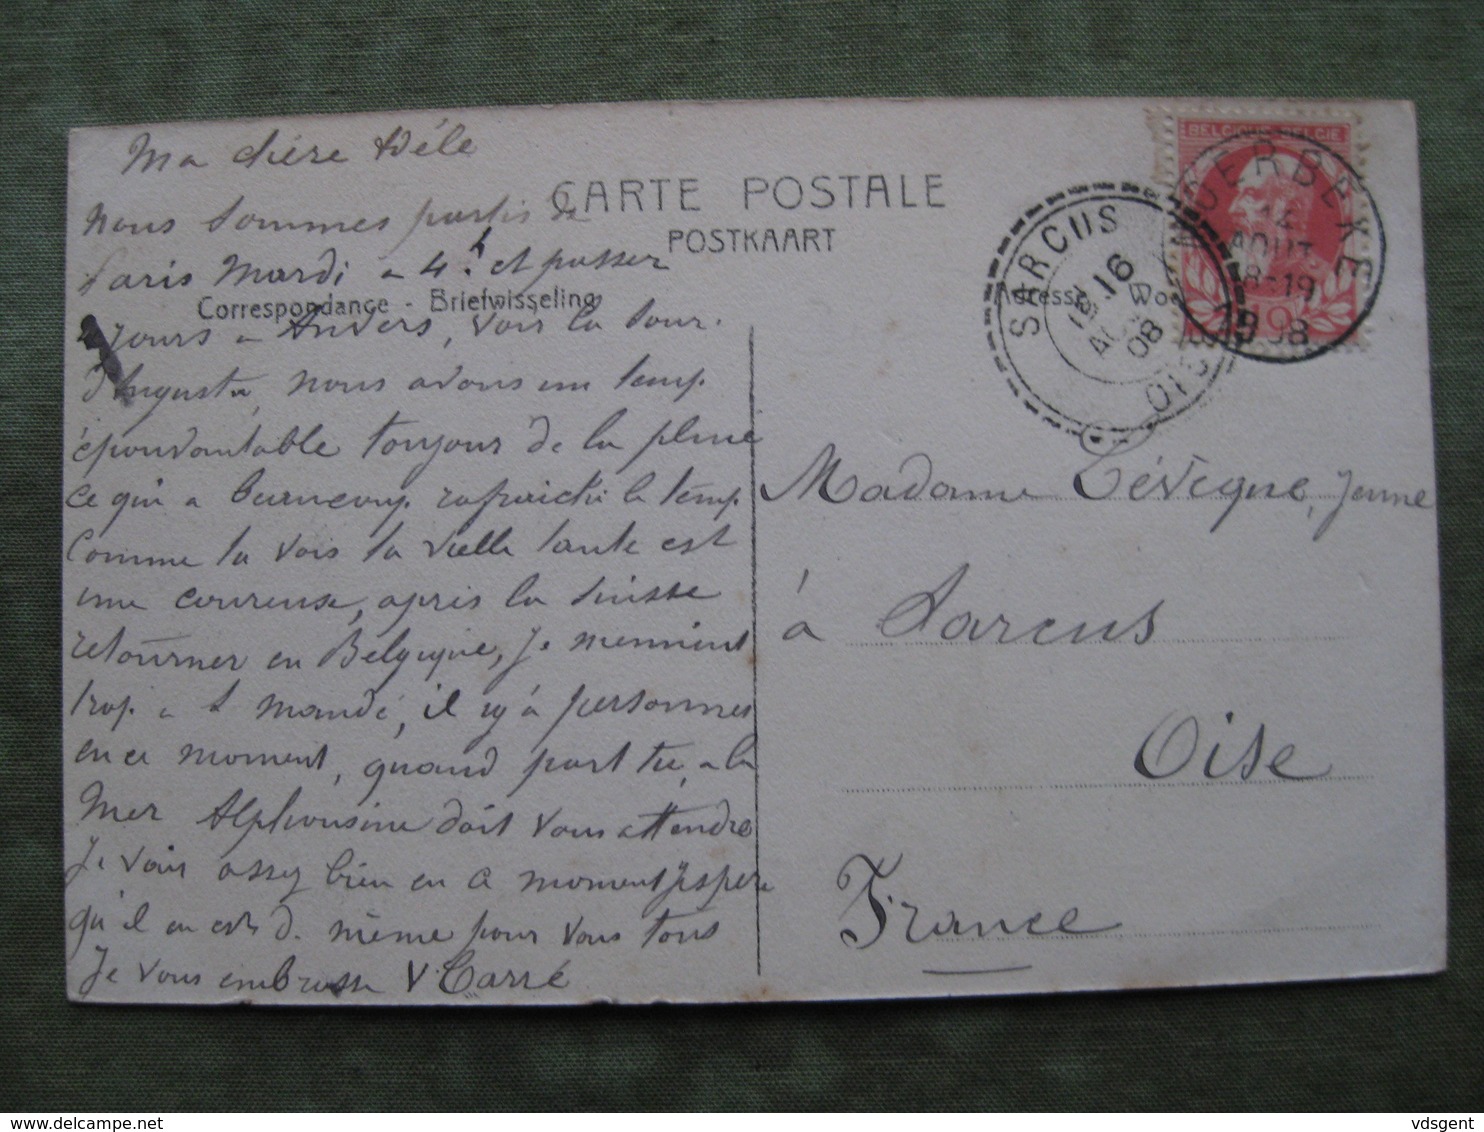 Ma chère Adèle
CARTE POSTALE
POSTKAART
Nous sommes partis de
Paris Mardi a 4 h et passer
Correspondance - Briefwisseling
Adresse Wo
2 jours a Anvers, voir la sour
d'Augusta, nous avons un temp
épouvantable toujour de la pluie
ce qui a beaucoup rafraichi le temp
Comme tu vois ta vielle tante est
une coureuse, apres la Suisse
retourner en Belgique, je mennuient
trop a S Mandé, il ny a personnes
en ce moment, quand part tu, a la
Mer Alphonsine doit vous attendre
Je vais assez bien en ce moment jespere
qu'il en est de même pour vous tous
Je vous embrasse V Carré
BELGIQUE BELGIE
MOERBEKE
14
AOUT
18-19
1908
SARCUS
16
AOUT
08
OISE
Madame Lévêque, Jeune
à Sarcus
Oise
France
delcampe.net
vdsgent